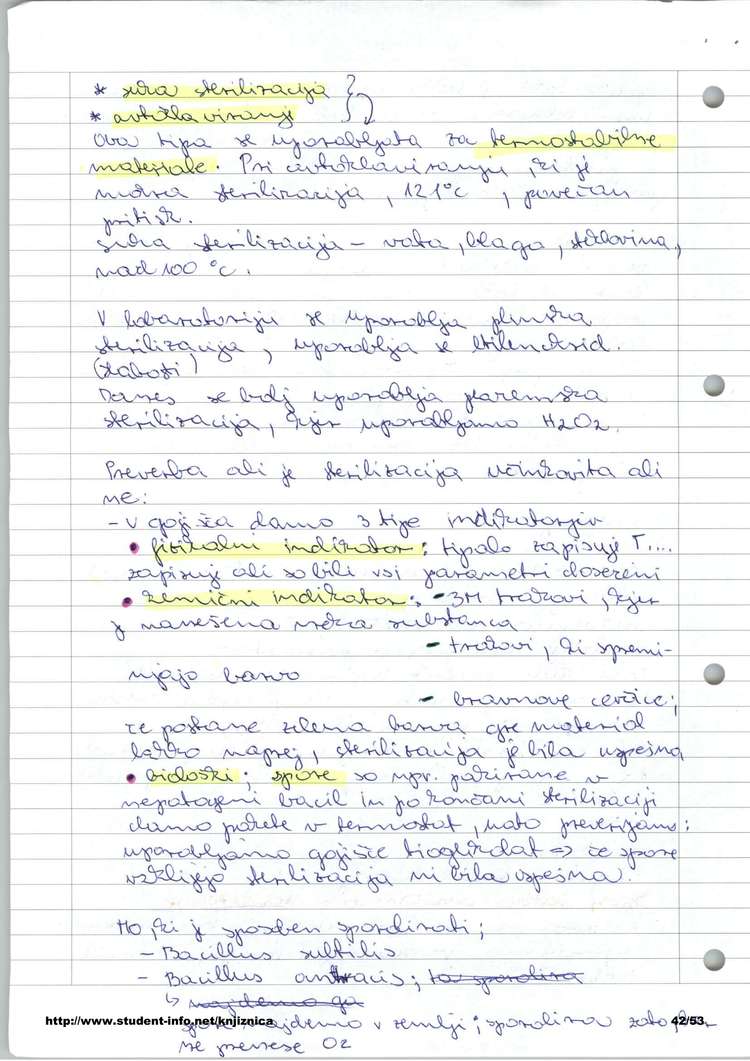 * suha sterilizacija
* avtoklaviranje
Oba tipa se uporabljata za termostabilne
materiale. Pri avtoklaviranju, ki je
mokra sterilizacija, 121°C, povečan
pritisk.
suha sterilizacija - vata, blago, steklovina,
nad 100 °C.
V laboratoriju se uporablja plinska
sterilizacija, uporablja se etilenoksid.
(slabosti)
Danes se bolj uporablja plazemska
sterilizacija, kjer uporabljamo H2O2.
Preverba ali je sterilizacija učinkovita ali
ne:
- v gojišča damo 3 tipe indikatorjev
• fizikalni indikator: tipalo zapisuje T....
zapisuje ali so bili vsi parametri doseženi
• kemični indikator: - 3M trakovi, kjer
je nanešena neka substanca
- trakovi, ki spremi-
njajo barvo
- bravnove cevčice;
če postane zelena barva gre material
lahko naprej, sterilizacija je bila uspešna
• biološki; spore so npr. pakirane v
nepatogeni bacil in po končani sterilizaciji
damo pakete v termostat, nato preverjamo:
uporabljamo gojišče tioglikolat => če spore
vzklijejo sterilizacija ni bila uspešna.
MO, ki je sposoben sporulirati;
- Bacillus subtilis
- Bacillus antracis; to sporulira
↳ najdemo ga
spore najdemo v zemlji; sporulira zato ker
ne prenese O2
http://www.student-info.net/knjiznica
42/53